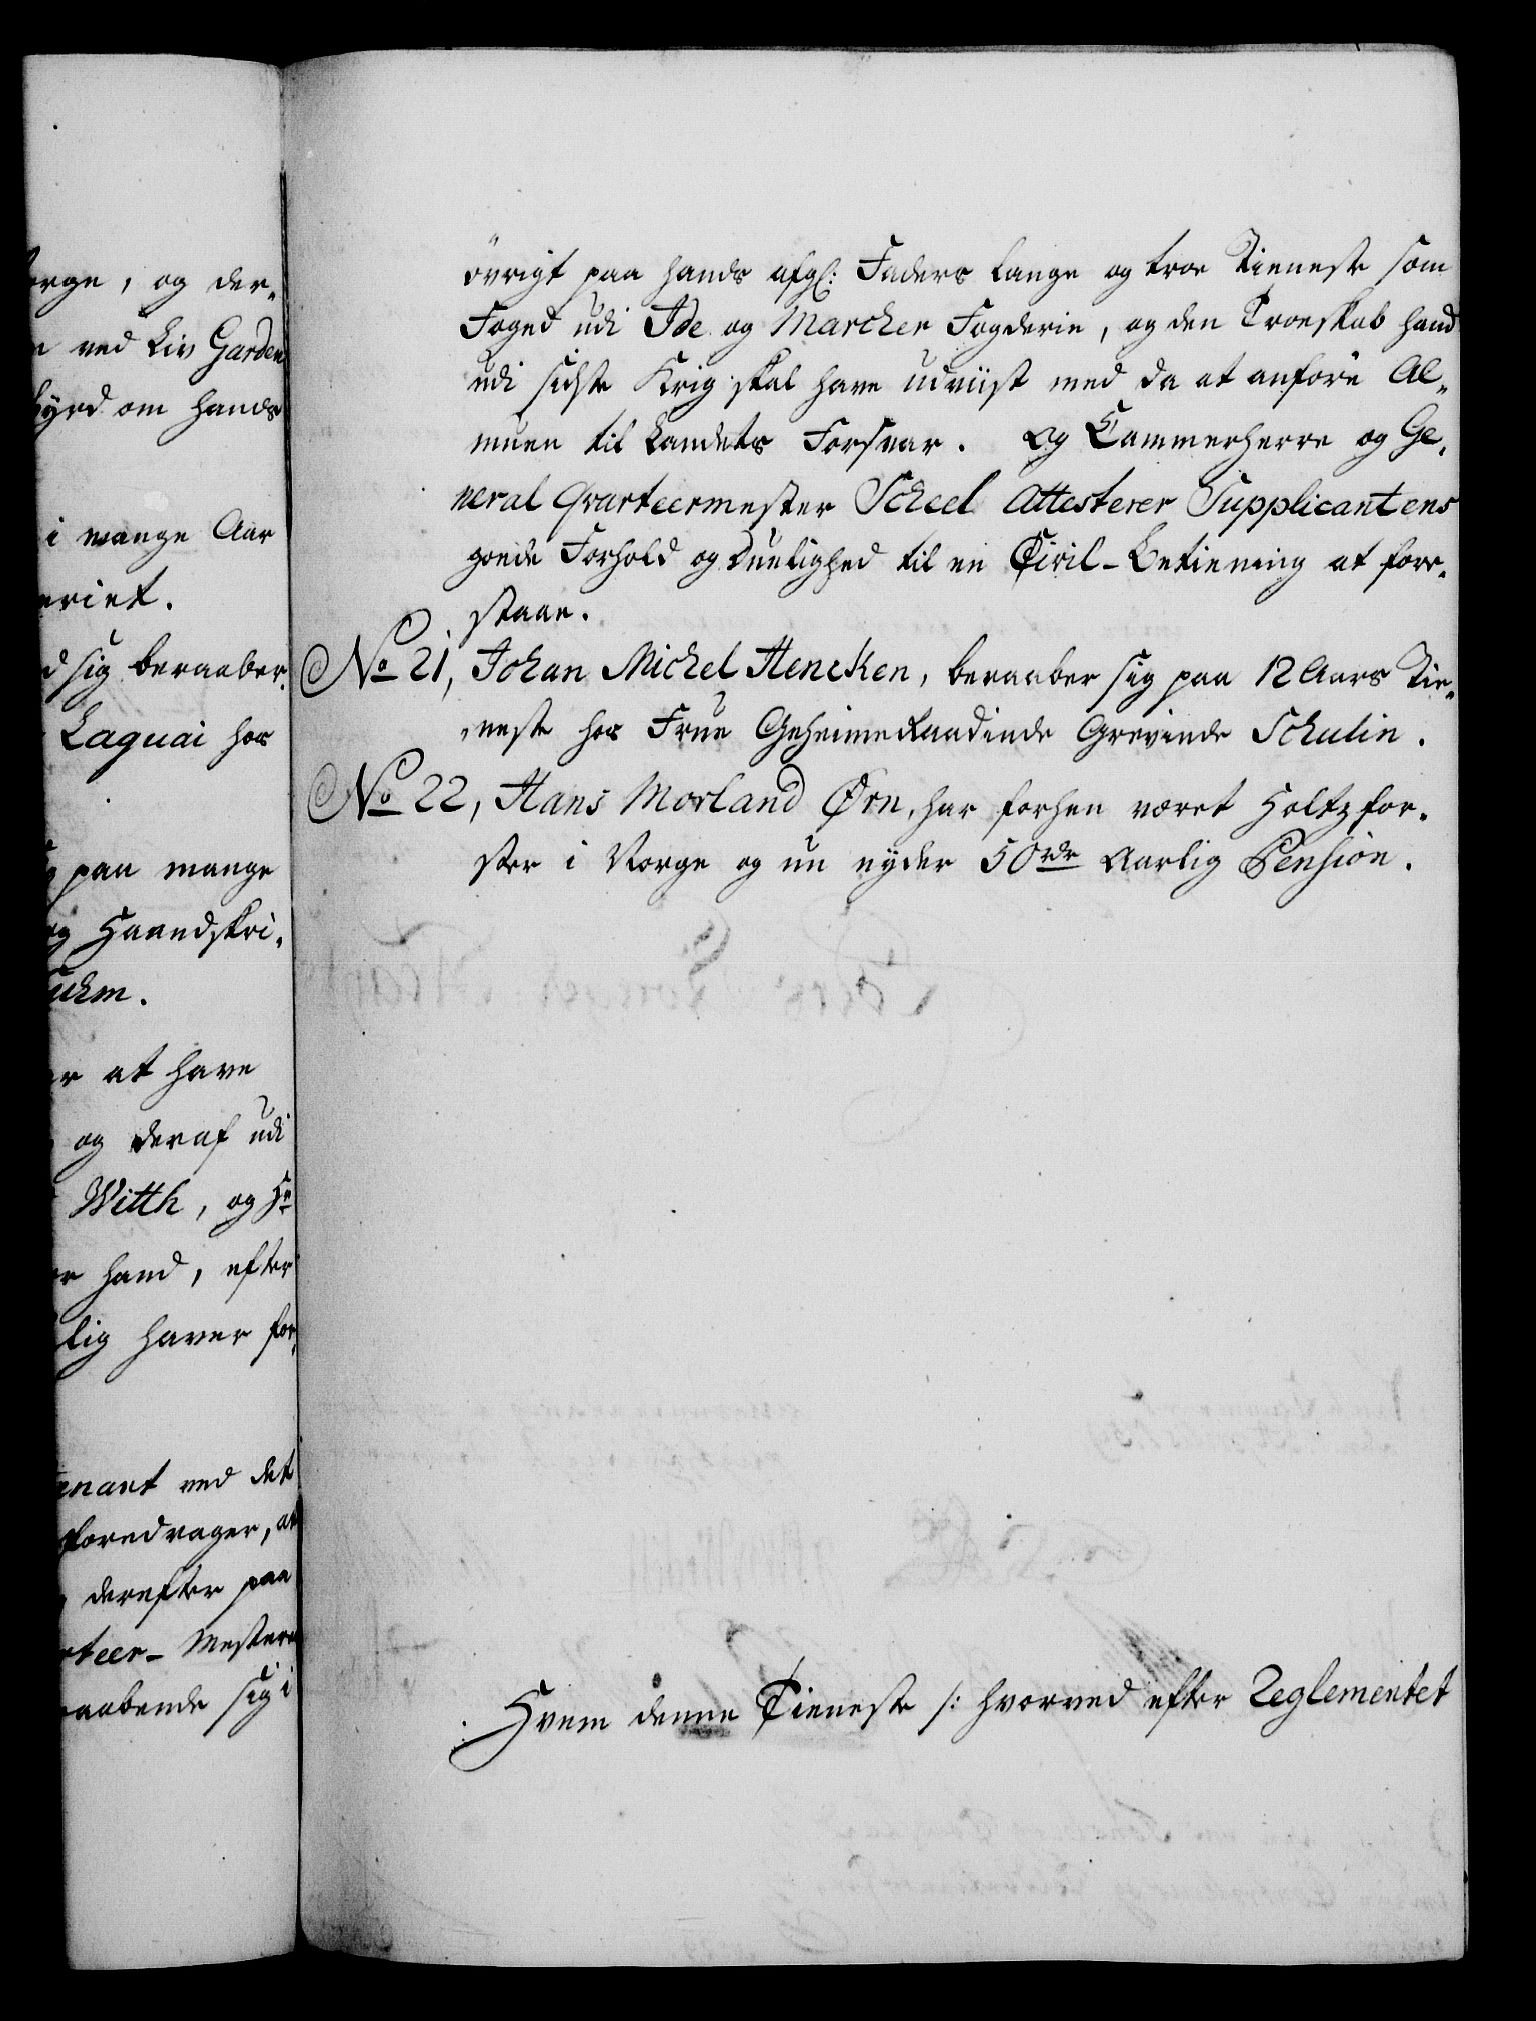 orge, og der-
n ved Liv Garden
byrd om hands
i mange Aar
eriet.
d sig beraaber
Laquai hos
paa mange
og Haandskri-
at have
og deraf udi
Witth, og Hr
er hand, efter
lig haver for-
enant ved det
foredrager, at
derefter paa
rteer-Mester
raabende sig i
övrigt paa hands afgl: Faders lange og troe Tieneste som
Foged udi Ide og Marcker Fogderie, og den Troeskab hand
udi sidste Krig skal have udviist med da at anföre Al-
muen til Landets Forsvar. Og Cammerherre og Ge-
neral Qvarteermester Scheel Attesterer Supplicantens
goede Forhold og Duelighed til en Civil-Betiening at fore-
staae.
No 21, Johan Michel Hencken, beraaber sig paa 12 Aars Tie-
neste hos Frue Geheimeraadinde Grevinde Schulin.
No 22, Hans Morland Ørn, har forhen været Holtzfor-
ster i Norge og nu nyder 50 rdr Aarlig Pension.
Hvem denne Tieneste /: hvorved efter Reglementet